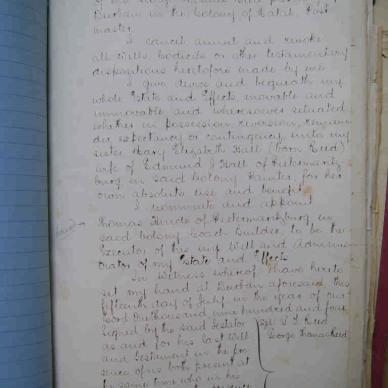 Durban in the Colony of Natal, Post
master
I cancel annul and revoke
all Wills, Codicils or other testamentary
dispositions heretofore made by me
I give devise and bequeath my
whole Estate and Effects, movable and
immovable and wheresoever situated
whether in possession, reversion, remain
der expectancy or contingency unto my
sister Mary Elizabeth Hall (born Reed)
wife of Edmund J Hall of Pietermaritz-
burg in said Colony Painter for her
own absolute use and benefit
I nominate and appoint
Thomas Hinde of Pietermaritzburg in
said Colony Coach Builder to be the
Executor of this my Will and Adminis-
trator of my Estate and Effects
In Witness whereof I have hereto
set my hand at Durban aforesaid this
fifteenth day of July in the year of our
Lord One thousand nine hundred and four
Signed by the said Testator
Reed
as and for his last Will
George Thomas Reed
and Testament in the pre
sence of us both present at
the same time who in his